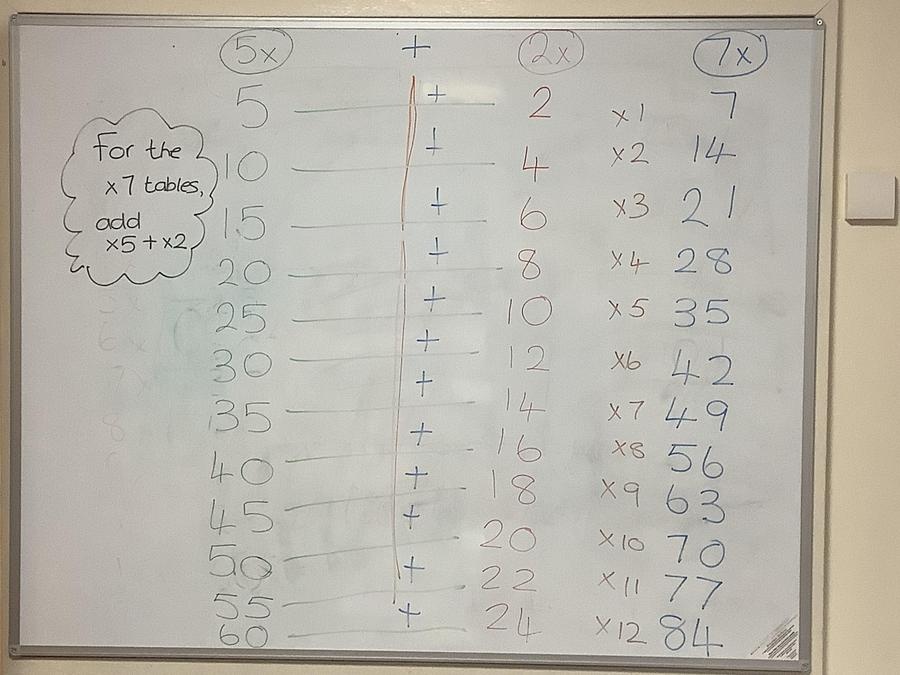 5x + 2x 7x
5 + 2 x1 7
10 + 4 x2 14
15 + 6 x3 21
20 + 8 x4 28
25 + 10 x5 35
30 + 12 x6 42
35 + 14 x7 49
40 + 16 x8 56
45 + 18 x9 63
50 + 20 x10 70
55 + 22 x11 77
60 + 24 x12 84
For the
x7 tables,
add
x5 + x2